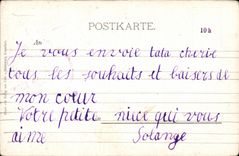 POSTKARTE.
10 h
An
Je vous envoie tata cherie
tous les souhaits et baisers de
mon cœur
Votre ptite nièce qui vous
aime Solange